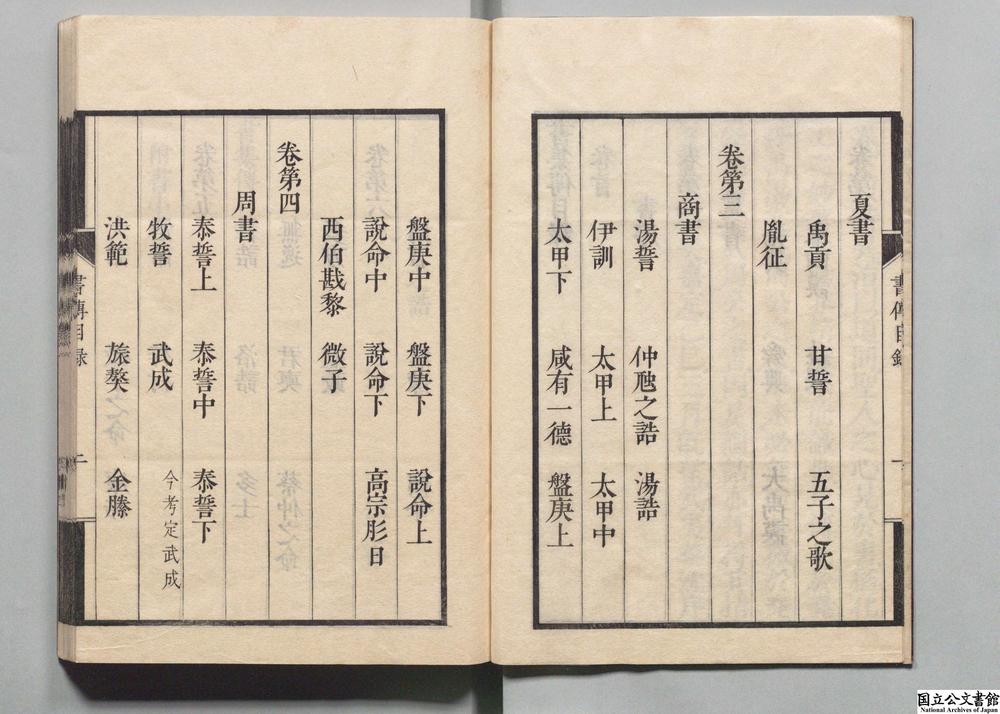 夏書
禹貢 甘誓 五子之歌
胤征
卷第三
商書
湯誓 仲虺之誥 湯誥
伊訓 太甲上 太甲中
太甲下 咸有一德 盤庚上
書傳目錄 一
盤庚中 盤庚下 說命上
說命中 說命下 高宗肜日
西伯戡黎 微子
卷第四
周書
泰誓上 泰誓中 泰誓下
牧誓 武成 今考定武成
洪範 旅獒 金縢
書傳目錄 二
国立公文書館
National Archives of Japan